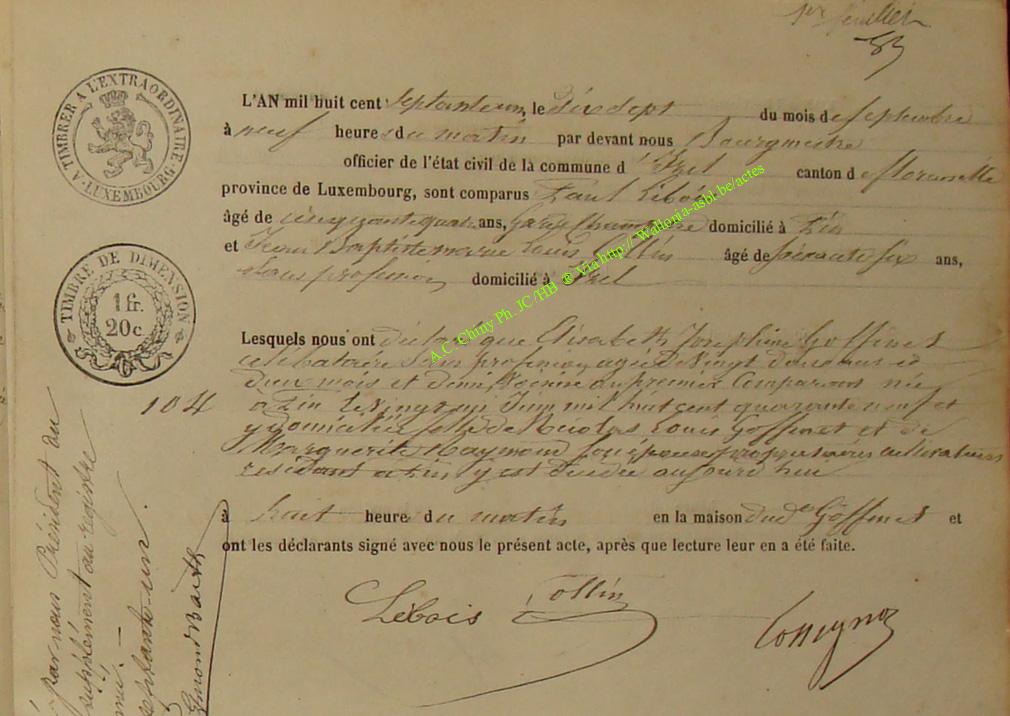 1er feuillet
TIMBRER A L'EXTRAORDINAIRE
LUXEMBOURG
TIMBRE DE DIMENSION
1 fr.
20 c.
L'AN mil huit cent septante un, le dix sept du mois de septembre
à neuf heures du matin par devant nous Bourgmestre
officier de l'état civil de la commune d'Izel canton de florenville
province de Luxembourg, sont comparus Paul Libois
âgé de cinquante quatre ans, garde champêtre domicilié à
et Jean Baptiste marie Louis Collin âgé de soixante six ans,
sans profession domicilié à Izel
A.C. Chiny Ph. JC/HB ® Via http:// Wallonia-asbl.be/actes
Lesquels nous ont déclaré que Elisabeth Josephine Goffinet
célibataire sans profession agée de vingt deux ans et
deux mois et demi, voisine du premier Comparant née
104
à le Juin mil huit cent quarante neuf et
y domiciliée fille de Nicolas Louis Goffinet et de
Marguerite Haymond son épouse propriétaires cultivateurs
résidant à y est décédée aujourd'hui
à huit heure du matin en la maison dudt Goffinet et
ont les déclarants signé avec nous le présent acte, après que lecture leur en a été faite.
Libois Collin
par nous Président du
supplément au registre
septante-un.